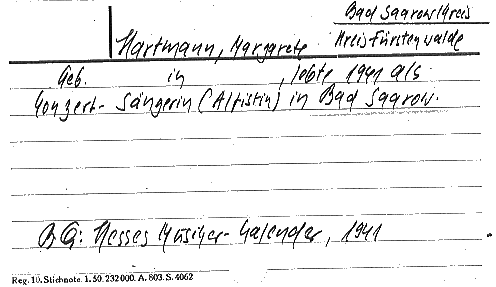 Bad Saarow Kreis
Hartmann, Margarete Kreis Fürstenwalde
Geb. in , lebte 1941 als
Konzert-Sängerin (Altistin) in Bad Saarow.
BQ: Hesses Musiker-Kalender, 1941
Reg. 10. Stichnote. 1. 50. 232000. A. 803. S. 4062